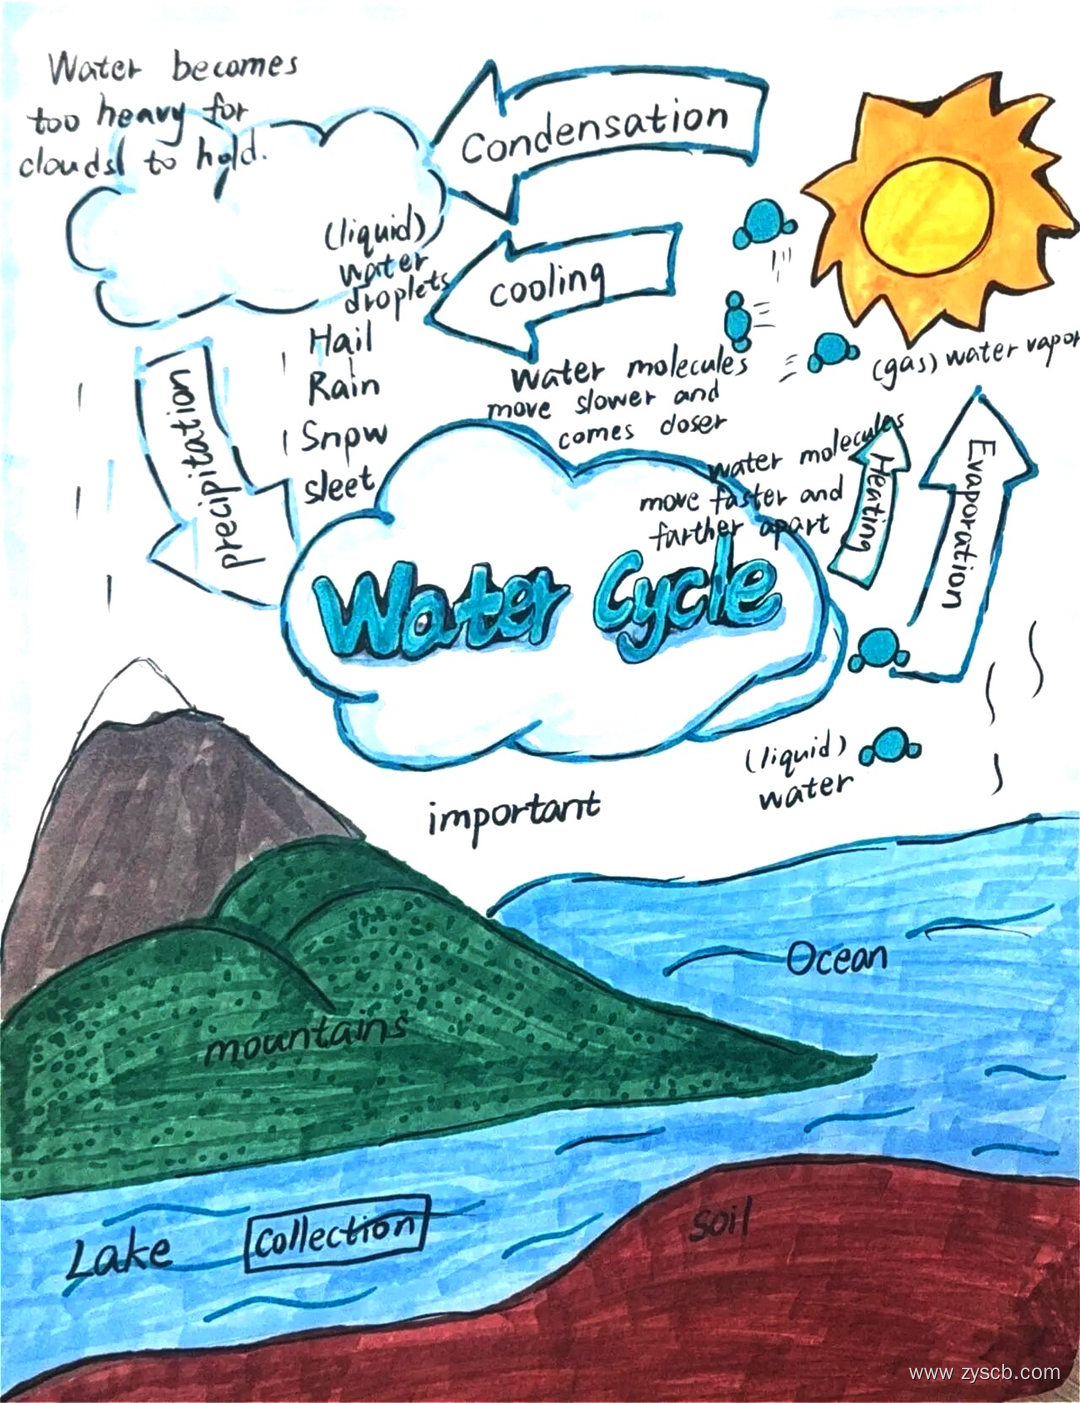 Water becomes
too heavy for
clouds to hold.
Condensation
(liquid)
water
droplets
cooling
Hail
Rain
Snow
sleet
precipitation
Water molecules
move slower and
comes closer
(gas) water vapor
water molecules
move faster and
farther apart
Heating
Evaporation
Water Cycle
(liquid)
water
important
Ocean
mountains
Lake
Collection
Soil
www.zyscb.com